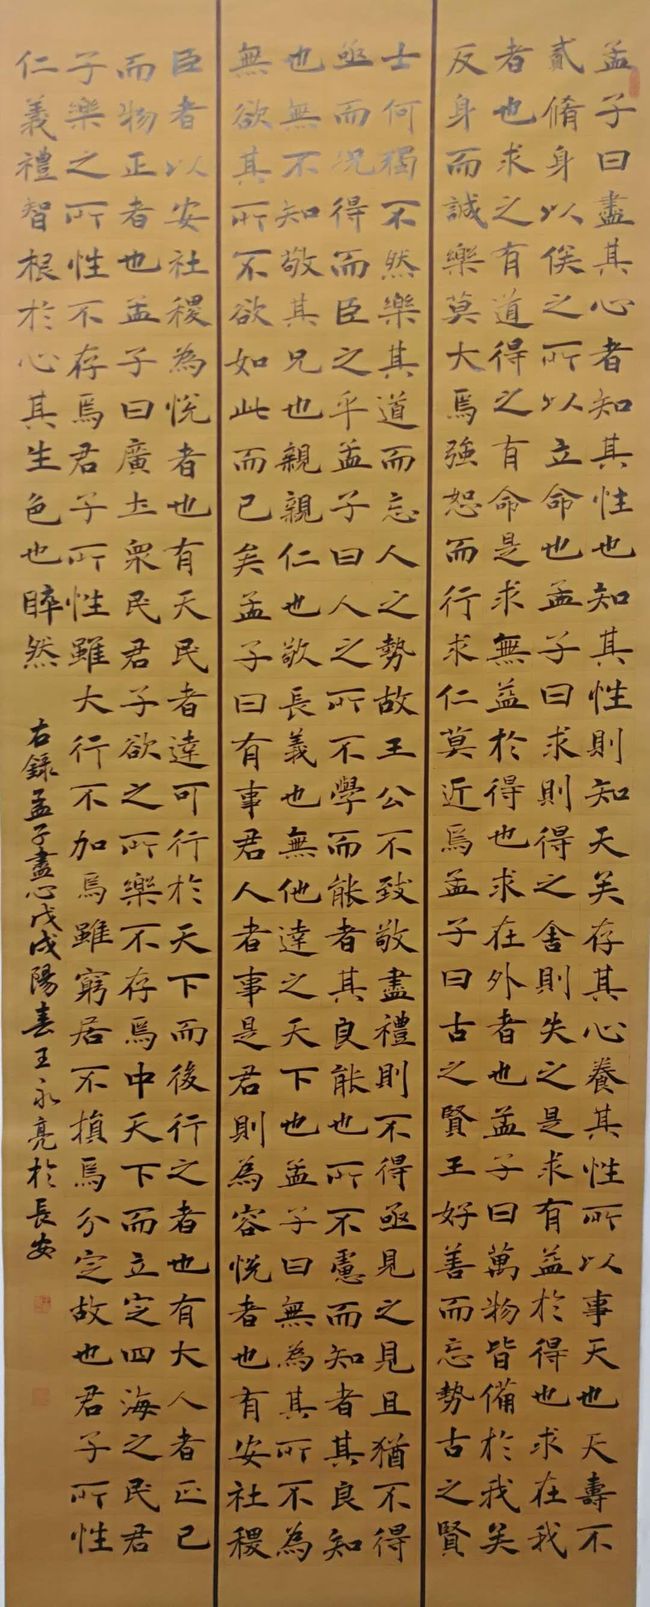 孟子曰盡其心者知其性也知其性則知天矣存其心養其性所以事天也夭壽不
貳脩身以俟之所以立命也孟子曰求則得之舍則失之是求有益於得也求在我
者也求之有道得之有命是求無益於得也求在外者也孟子曰萬物皆備於我矣
反身而誠樂莫大焉強恕而行求仁莫近焉孟子曰古之賢王好善而忘勢古之賢
士何獨不然樂其道而忘人之勢故王公不致敬盡禮則不得亟見之見且猶不得
亟而況得而臣之乎孟子曰人之所不學而能者其良能也所不慮而知者其良知
也無不知敬其兄也親親仁也敬長義也無他達之天下也孟子曰無為其所不為
無欲其所不欲如此而已矣孟子曰有事君人者事是君則為容悅者也有安社稷
臣者以安社稷為悅者也有天民者達可行於天下而後行之者也有大人者正己
而物正者也孟子曰廣土眾民君子欲之所樂不存焉中天下而立定四海之民君
子樂之所性不存焉君子所性雖大行不加焉雖窮居不損焉分定故也君子所性
仁義禮智根於心其生色也睟然
右錄孟子盡心戊戌陽春王永亮於長安